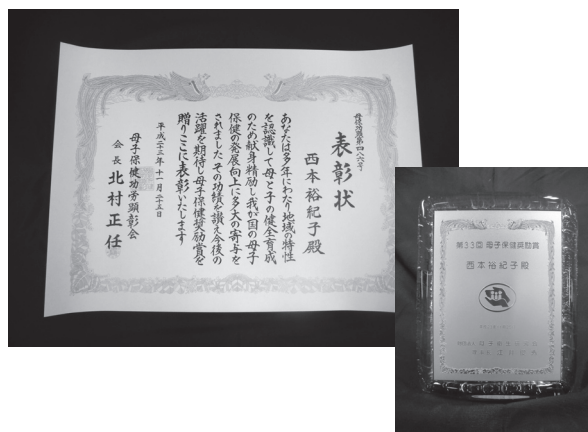 母保功顕第四八六号
表彰状
西本裕紀子殿
あなたは多年にわたり地域の特性
を認識して母と子の健全育成
のため献身精励し我が国の母子
保健の発展向上に多大の寄与を
されました その功績を讃え今後の
活躍を期待し母子保健奨励賞を
贈りここに表彰いたします
平成二十三年十一月二十五日
母子保健功労顕彰会
会長 北村正任
第33回 母子保健奨励賞
西本裕紀子殿